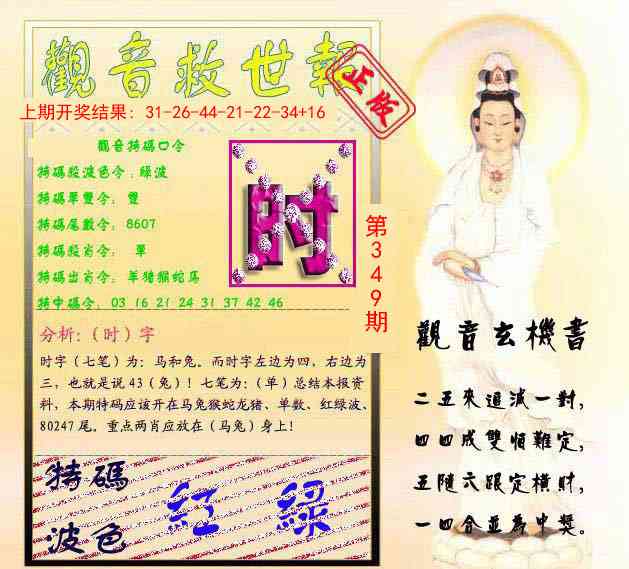 觀音救世報
正版
上期开奖结果：31-26-44-21-22-34+16
觀音特碼口令
特碼段波色令：綠波
特碼單雙令：雙
特碼尾數令：8607
特碼段肖令：單
特碼出肖令：羊猪猴蛇马
特中碼令：03 16 21 24 31 37 42 46
时
第349期
分析:（时）字
时字（七笔）为：马和兔。而时字左边为四，右边为
三，也就是说 43（兔）！七笔为:（单）总结本报资
料，本期特码应该开在马兔猴蛇龙猪、单数、红绿波、
80247 尾。重点两肖应放在（马兔）身上！
特碼
波色
红 綠
觀音玄機書
二五來追减一對,
四四成雙恒難定,
五隨六跟定橫財,
一四合並爲中獎。